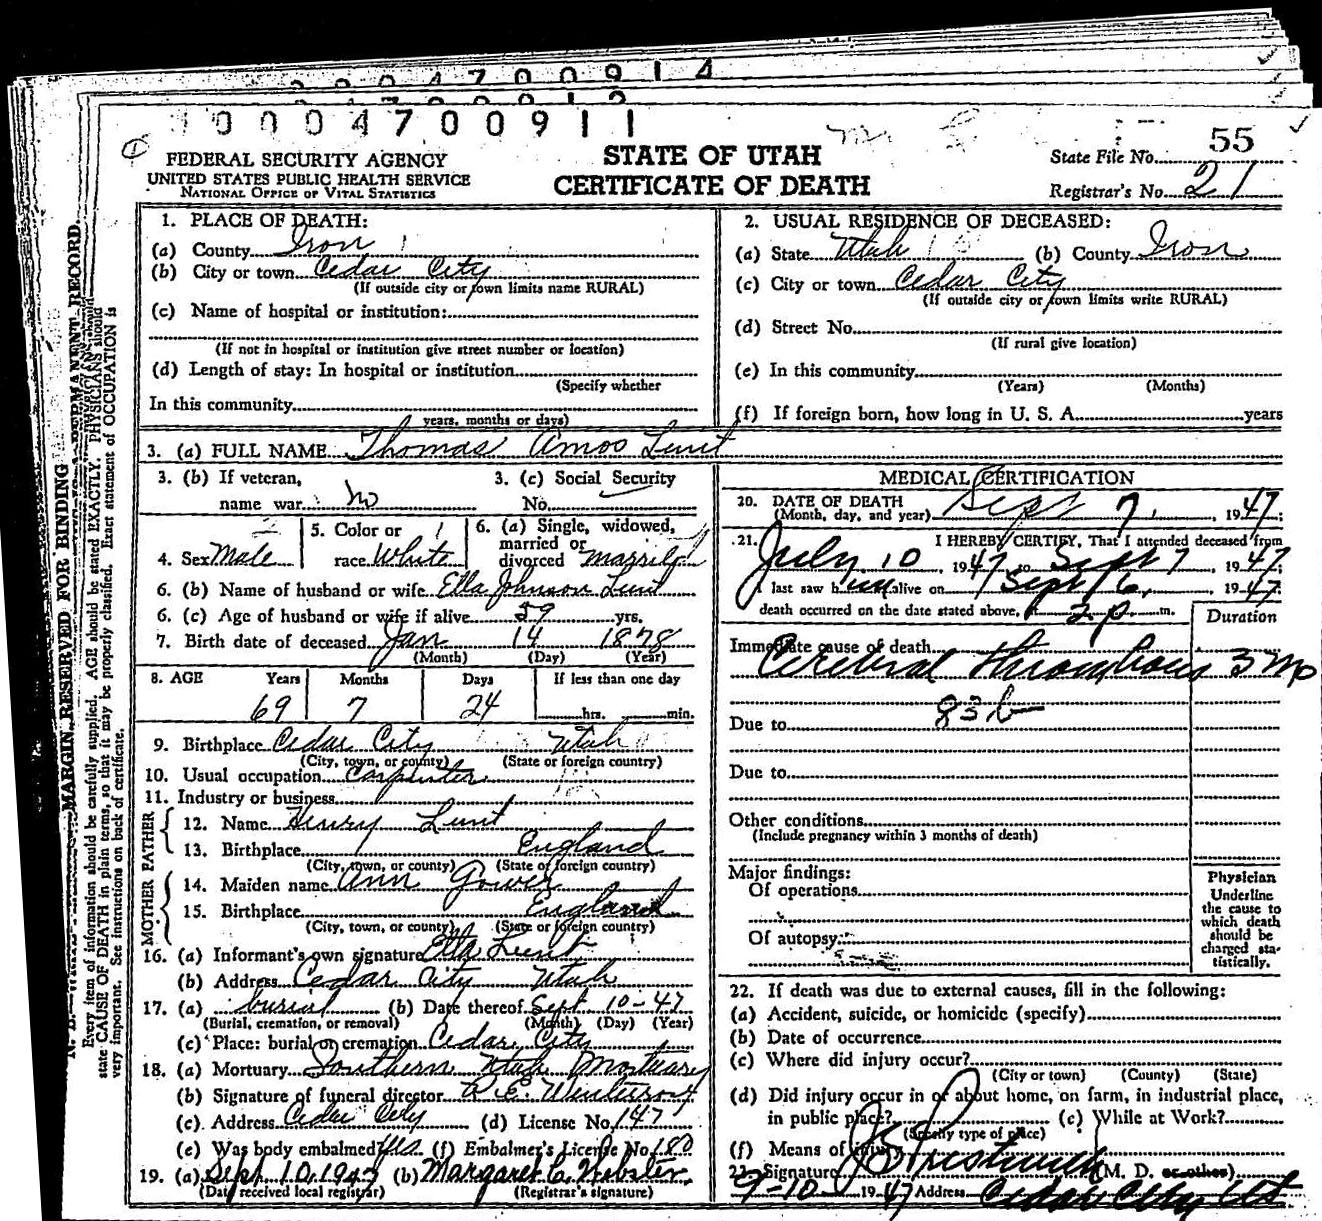 0004700914
0004700912
0004700911
FEDERAL SECURITY AGENCY
UNITED STATES PUBLIC HEALTH SERVICE
NATIONAL OFFICE OF VITAL STATISTICS
STATE OF UTAH
CERTIFICATE OF DEATH
State File No. 55
Registrar's No. 21
MARGIN RESERVED FOR BINDING
PERMANENT RECORD.
Every item of information should be carefully supplied. AGE should be stated EXACTLY. PHYSICIANS should
state CAUSE OF DEATH in plain terms, so that it may be properly classified. Exact statement of OCCUPATION is
very important. See instructions on back of certificate.
1. PLACE OF DEATH:
(a) County Iron
(b) City or town Cedar City
(If outside city or town limits name RURAL)
(c) Name of hospital or institution:
(If not in hospital or institution give street number or location)
(d) Length of stay: In hospital or institution
(Specify whether
In this community
years, months or days)
2. USUAL RESIDENCE OF DECEASED:
(a) State Utah (b) County Iron
(c) City or town Cedar City
(If outside city or town limits write RURAL)
(d) Street No.
(If rural give location)
(e) In this community
(Years) (Months)
(f) If foreign born, how long in U. S. A. years
3. (a) FULL NAME Thomas Amos Lunt
3. (b) If veteran,
name war No
3. (c) Social Security
No.
4. Sex Male
5. Color or
race White
6. (a) Single, widowed,
married or
divorced Married
6. (b) Name of husband or wife Ella Johnson Lunt
6. (c) Age of husband or wife if alive 59 yrs.
7. Birth date of deceased Jan 14 1878
(Month) (Day) (Year)
8. AGE Years Months Days If less than one day
69 7 24 hrs. min.
9. Birthplace Cedar City Utah
(City, town, or county) (State or foreign country)
10. Usual occupation Carpenter
11. Industry or business
FATHER
12. Name Henry Lunt
13. Birthplace England
(City, town, or county) (State or foreign country)
MOTHER
14. Maiden name Ann Gower
15. Birthplace England
(City, town, or county) (State or foreign country)
16. (a) Informant's own signature Ella Lunt
(b) Address Cedar City Utah
17. (a) burial (b) Date thereof Sept 10-47
(Burial, cremation, or removal) (Month) (Day) (Year)
(c) Place: burial or cremation Cedar City
18. (a) Mortuary Southern Utah Mortuary
(b) Signature of funeral director
(c) Address Cedar City (d) License No. 147
(e) Was body embalmed yes (f) Embalmer's License No. 180
19. (a) Sept 10, 1947 (b) Margaret C. Webster
(Date received local registrar) (Registrar's signature)
MEDICAL CERTIFICATION
20. DATE OF DEATH
(Month, day, and year) Sept 7, 1947;
21. I HEREBY CERTIFY, That I attended deceased from
July 10, 1947 to Sept 7, 1947
I last saw him alive on Sept 6, 1947
death occurred on the date stated above, at 2 p. m.
Duration
Immediate cause of death
Cerebral thrombosis 3 mo
83b
Due to
Due to
Other conditions
(Include pregnancy within 3 months of death)
Major findings:
Of operations
Of autopsy
Physician
Underline
the cause to
which death
should be
charged sta-
tistically.
22. If death was due to external causes, fill in the following:
(a) Accident, suicide, or homicide (specify)
(b) Date of occurrence
(c) Where did injury occur?
(City or town) (County) (State)
(d) Did injury occur in or about home, on farm, in industrial place,
in public place? (e) While at Work?
(Specify type of place)
(f) Means of injury
23. Signature (M. D. or other)
9-10 1947 Address Cedar City Ut